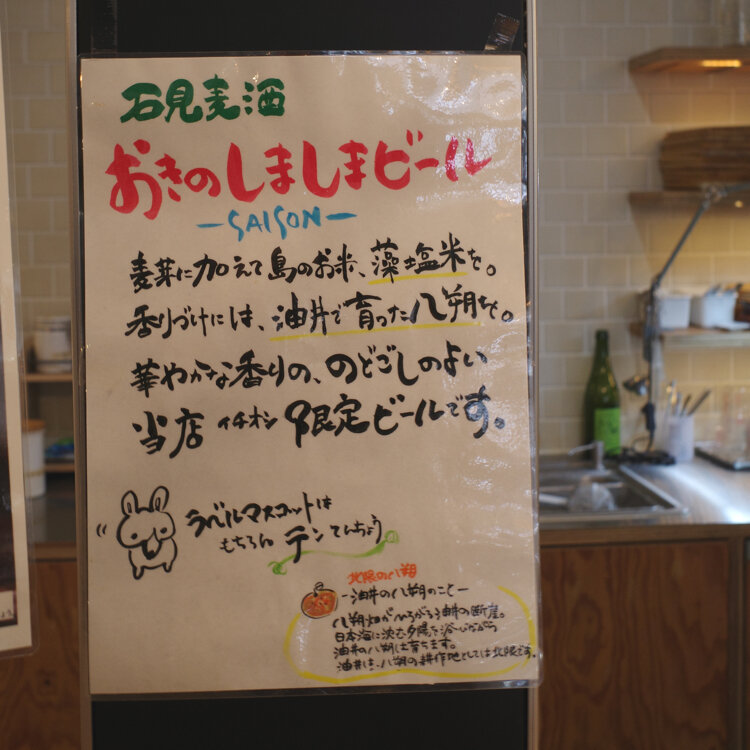 石見麦酒
おきのしましまビール
-SAISON-
麦芽に加えて島のお米、藻塩米を。
香りづけには、油井で育った八朔を。
華やかな香りの、のどごしのよい
当店イチオシ限定ビールです。
ラベルマスコットは
もちろんテンてんちょう
北限の八朔
-油井の八朔のこと-
八朔畑がひろがる油井の断崖。
日本海に沈む夕陽を浴びながら
油井の八朔は育ちます。
油井は、八朔の耕作地としては北限です。